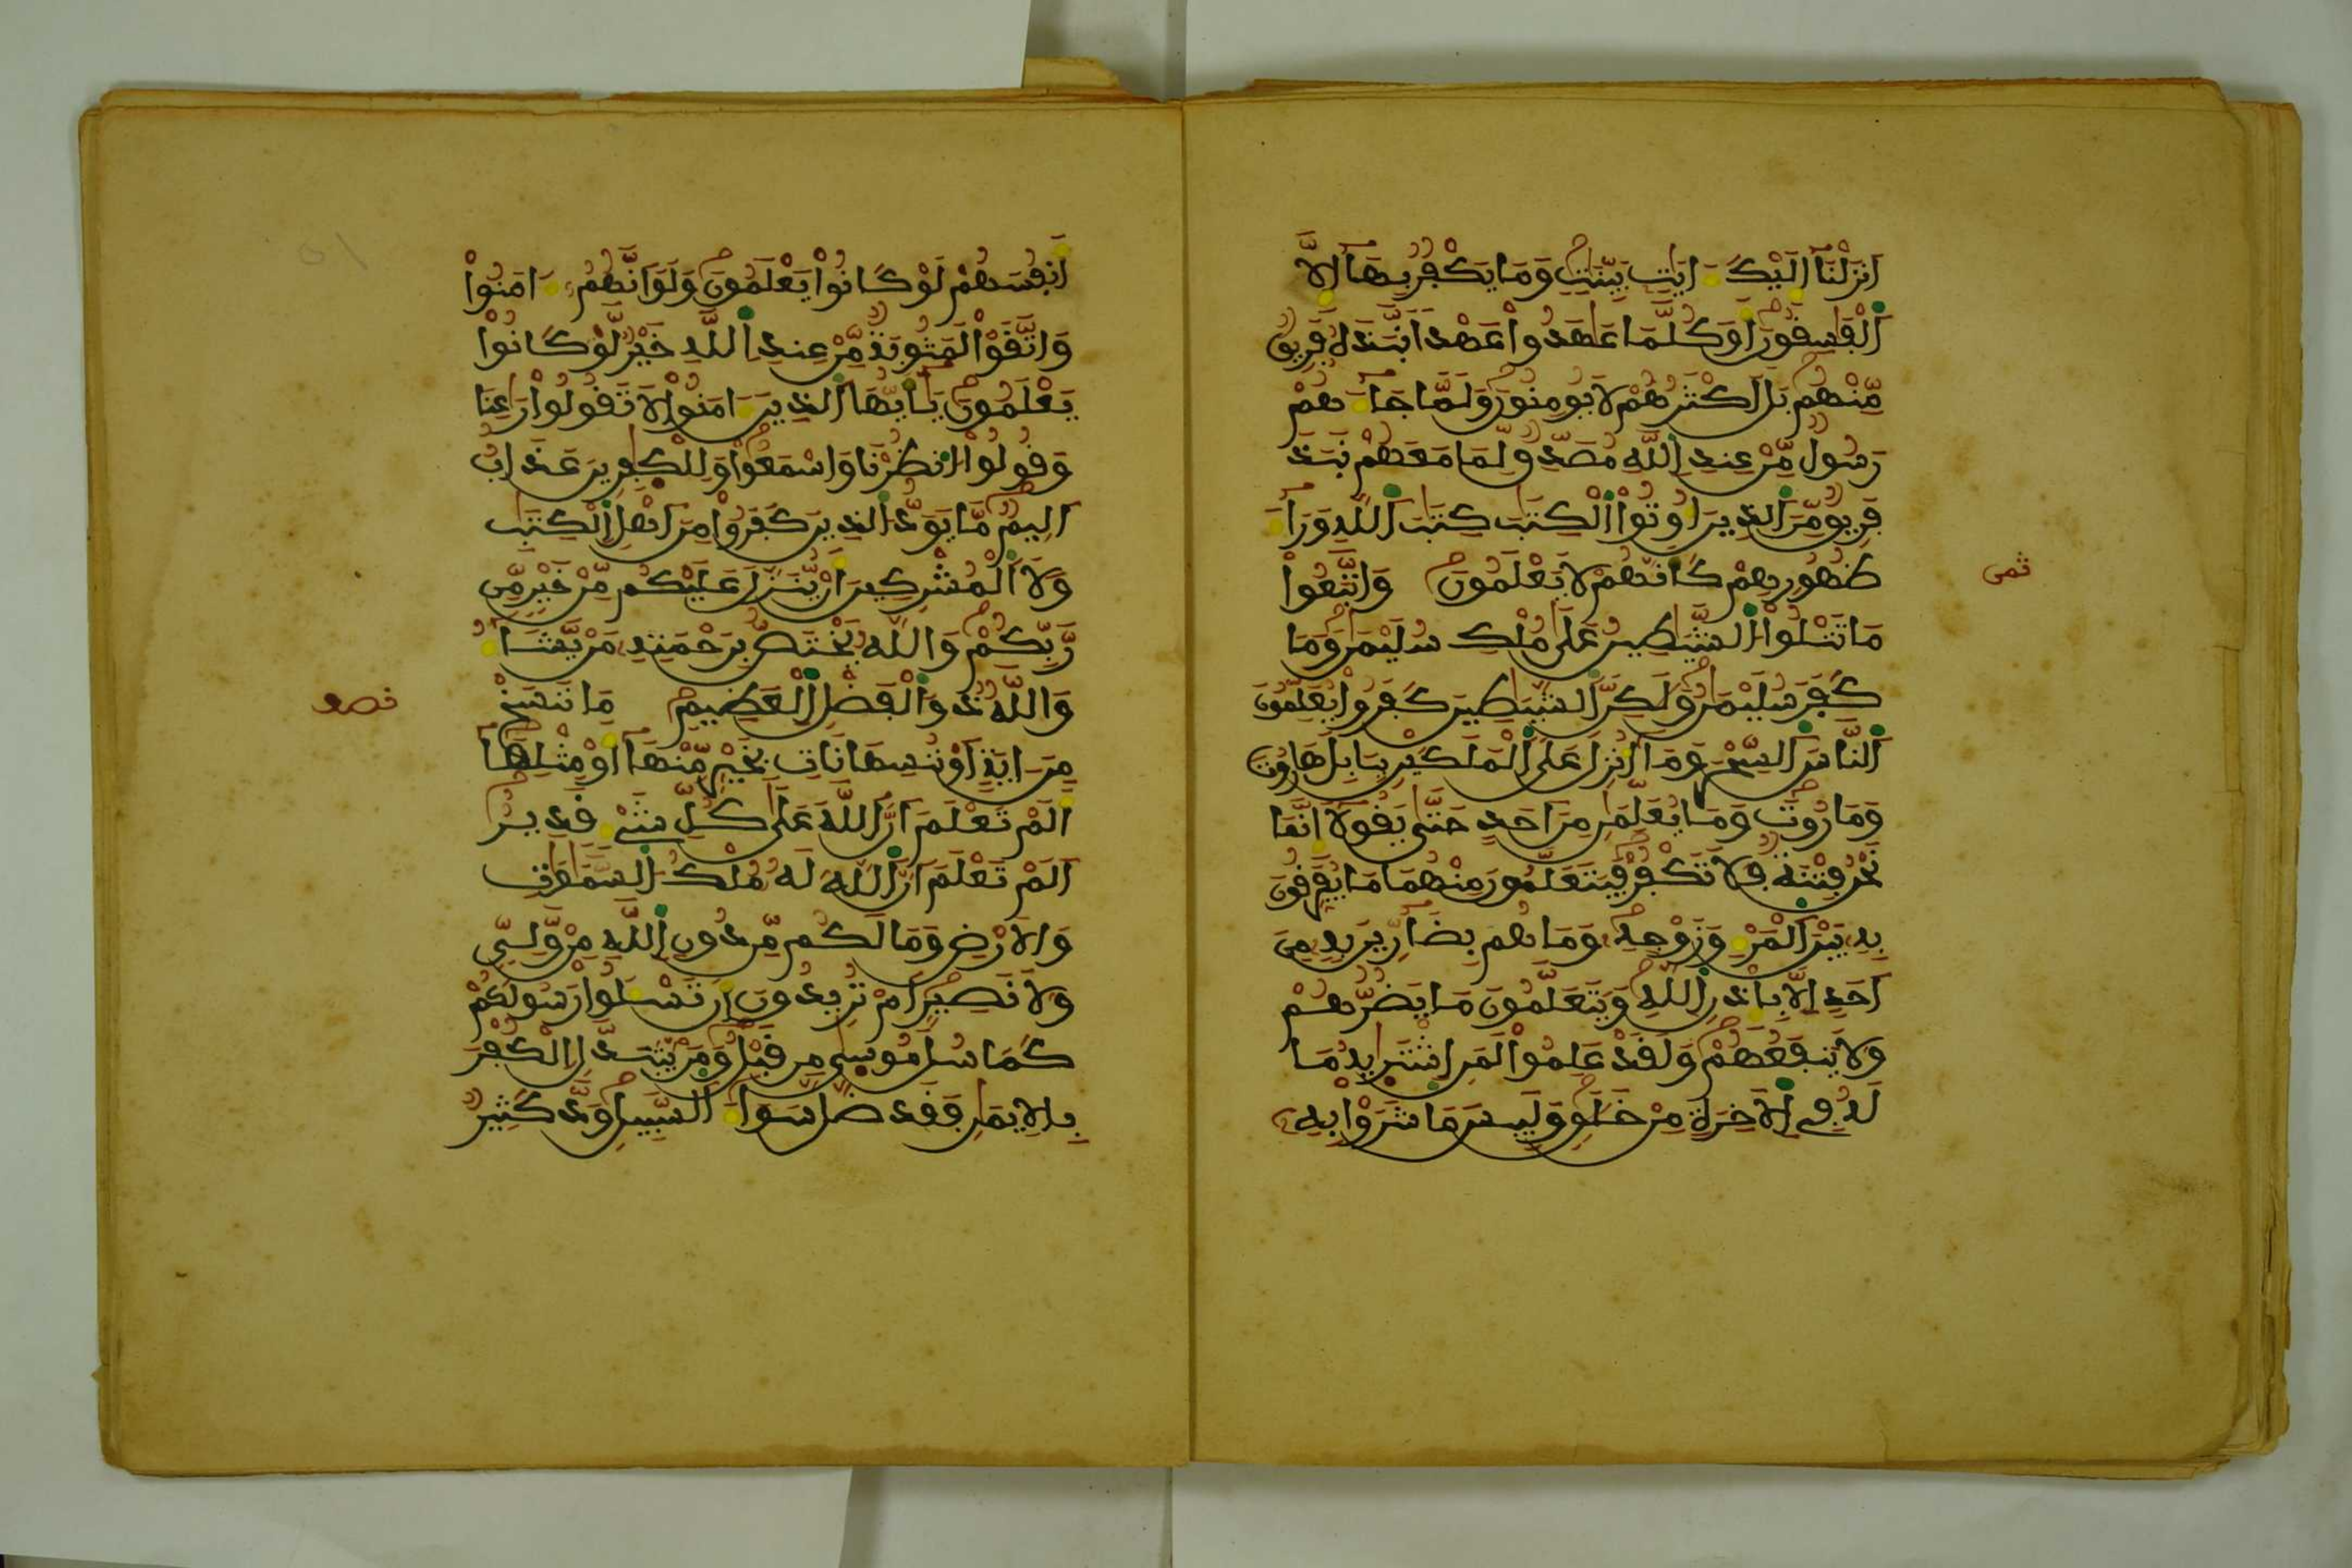 اَنزَلْنَآ إِلَيْكَ ءَايَٰتِۢ بَيِّنَٰتٖ وَمَا يَكْفُرُ بِهَآ إِلَّا
اَلْفَٰسِقُونَ أَوَكُلَّمَا عَٰهَدُواْ عَهْداٗ نَّبَذَهُۥ فَرِيقٞ
مِّنْهُم بَلَ اَكْثَرُهُمْ لَا يُومِنُونَ وَلَمَّا جَآءَهُمْ
رَسُولٞ مِّنْ عِندِ اِ۬للَّهِ مُصَدِّقٞ لِّمَا مَعَهُمْ نَبَذَ
فَرِيقٞ مِّنَ اَ۬لذِينَ أُوتُواْ اُ۬لْكِتَٰبَ كِتَٰبَ اَ۬للَّهِ وَرَآءَ
ظُهُورِهِمْ كَأَنَّهُمْ لَا يَعْلَمُونَ وَاتَّبَعُواْ
ثمن
مَا تَتْلُواْ اُ۬لشَّيَٰطِينُ عَلَىٰ مُلْكِ سُلَيْمَٰنَ وَمَا
كَفَرَ سُلَيْمَٰنُ وَلَٰكِنَّ اَ۬لشَّيَٰطِينَ كَفَرُواْ يُعَلِّمُونَ
اَ۬لنَّاسَ اَ۬لسِّحْرَ وَمَآ أُنزِلَ عَلَى اَ۬لْمَلَكَيْنِ بِبَابِلَ هَٰرُوتَ
وَمَٰرُوتَ وَمَا يُعَلِّمَٰنِ مِنَ اَحَدٍ حَتَّىٰ يَقُولَآ إِنَّمَا
نَحْنُ فِتْنَةٞ فَلَا تَكْفُرْ فَيَتَعَلَّمُونَ مِنْهُمَا مَا يُفَرِّقُونَ
بِهِۦ بَيْنَ اَ۬لْمَرْءِ وَزَوْجِهِۦ وَمَا هُم بِضَآرِّينَ بِهِۦ مِنَ
اَحَدٍ اِلَّا بِإِذْنِ اِ۬للَّهِ وَيَتَعَلَّمُونَ مَا يَضُرُّهُمْ
وَلَا يَنفَعُهُمْ وَلَقَدْ عَلِمُواْ لَمَنِ اِ۪شْتَرَىٰهُ مَا
لَهُۥ فِے اِ۬لَاخِرَةِ مِنْ خَلَٰقٖ وَلَبِيسَ مَا شَرَوْاْ بِهِۦٓ
أَنفُسَهُمْ لَوْ كَانُواْ يَعْلَمُونَ وَلَوَ اَنَّهُمُۥٓ ءَامَنُواْ
وَاتَّقَوْاْ لَمَثُوبَةٞ مِّنْ عِندِ اِ۬للَّهِ خَيْرٞ لَّوْ كَانُواْ
يَعْلَمُونَ يَٰٓأَيُّهَا اَ۬لذِينَ ءَامَنُواْ لَا تَقُولُواْ رَٰعِنَا
وَقُولُواْ اُ۟نظُرْنَا وَاسْمَعُواْ وَلِلْكٰ۪فِرِينَ عَذَابٌ
اَلِيمٞ مَّا يَوَدُّ اُ۬لذِينَ كَفَرُواْ مِنَ اَهْلِ اِ۬لْكِتَٰبِ
وَلَا اَ۬لْمُشْرِكِينَ أَنْ يُّنَزَّلَ عَلَيْكُم مِّنْ خَيْرٖ مِّن
رَّبِّكُمْ وَاللَّهُ يَخْتَصُّ بِرَحْمَتِهِۦ مَنْ يَّشَآءُ
وَاللَّهُ ذُو اُ۬لْفَضْلِ اِ۬لْعَظِيمِ مَا نَنسَخْ
نصف
مِنَ ايَةٍ اَوْ نُنسِهَا نَاتِ بِخَيْرٖ مِّنْهَآ أَوْ مِثْلِهَآ
أَلَمْ تَعْلَمَ اَنَّ اَ۬للَّهَ عَلَىٰ كُلِّ شَےْءٖ قَدِيرٌ
اَلَمْ تَعْلَمَ اَنَّ اَ۬للَّهَ لَهُۥ مُلْكُ اُ۬لسَّمَٰوَٰتِ
وَالَارْضِ وَمَا لَكُم مِّن دُونِ اِ۬للَّهِ مِنْ وَّلِيّٖ
وَلَا نَصِيرٍ اَمْ تُرِيدُونَ أَن تَسْـَٔلُواْ رَسُولَكُمْ
كَمَا سُئِلَ مُوس۪يٰ مِن قَبْلُ وَمَنْ يَّتَبَدَّلِ اِ۬لْكُفْرَ
بِالِايمَٰنِ فَقَد ضَّلَّ سَوَآءَ اَ۬لسَّبِيلِ وَدَّ كَثِيرٞ